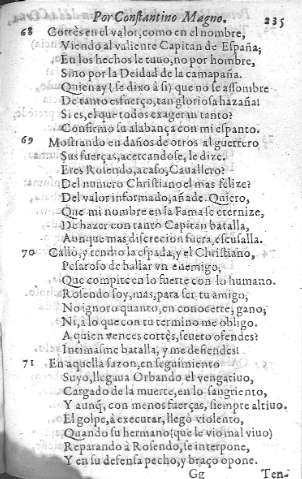 Por Constantino Magno. 235
68 Cortès en el valor, como en el nombre,
Viendo al valiente Capitan de España;
En los hechos le tuuo, no por hombre,
Sino por la Deidad de la campaña.
Quien ay (se dixo à si) que no se assombre
De tanto esfuerço, tan gloriosa hazaña!
Si es, el que todos exageran tanto?
Confirmo su alabança con mi espanto.
69 Mostrando en daños de otros al guerrero
Sus fuerças, acercandose, le dize.
Eres Rosendo, acaso, Cauallero?
Del numero Christiano el mas felize?
Del valor informado, añade. Quiero,
Que mi nombre en la Fama se eternize,
De hazer con tanto Capitan batalla,
Aunque mas discrecion fuera, escusalla.
70 Callò, y tendio la espada, y el Christiano,
Pesaroso de hallar vn enemigo,
Que compite en lo fuerte con lo humano.
Rosendo soy, mas, para ser tu amigo,
No ignoro quanto, en conocerte, gano,
Ni, a lo que con tu termino me obligo.
A quien vences cortès, seuero ofendes?
Intimasme batalla, y me defiendes?
71 En aquella sazon, en seguimiento
Suyo, llegaua Orbando el vengatiuo,
Cargado de la muerte, en lo sangriento,
Y aunq̃, con menos fuerças, siempre altiuo.
El golpe, à executar, llegò violento,
Quando su hermano (que le vio mal viuo)
Reparando à Rosendo, se interpone,
Y en su defensa pecho, y braço opone.
Gg Ten-